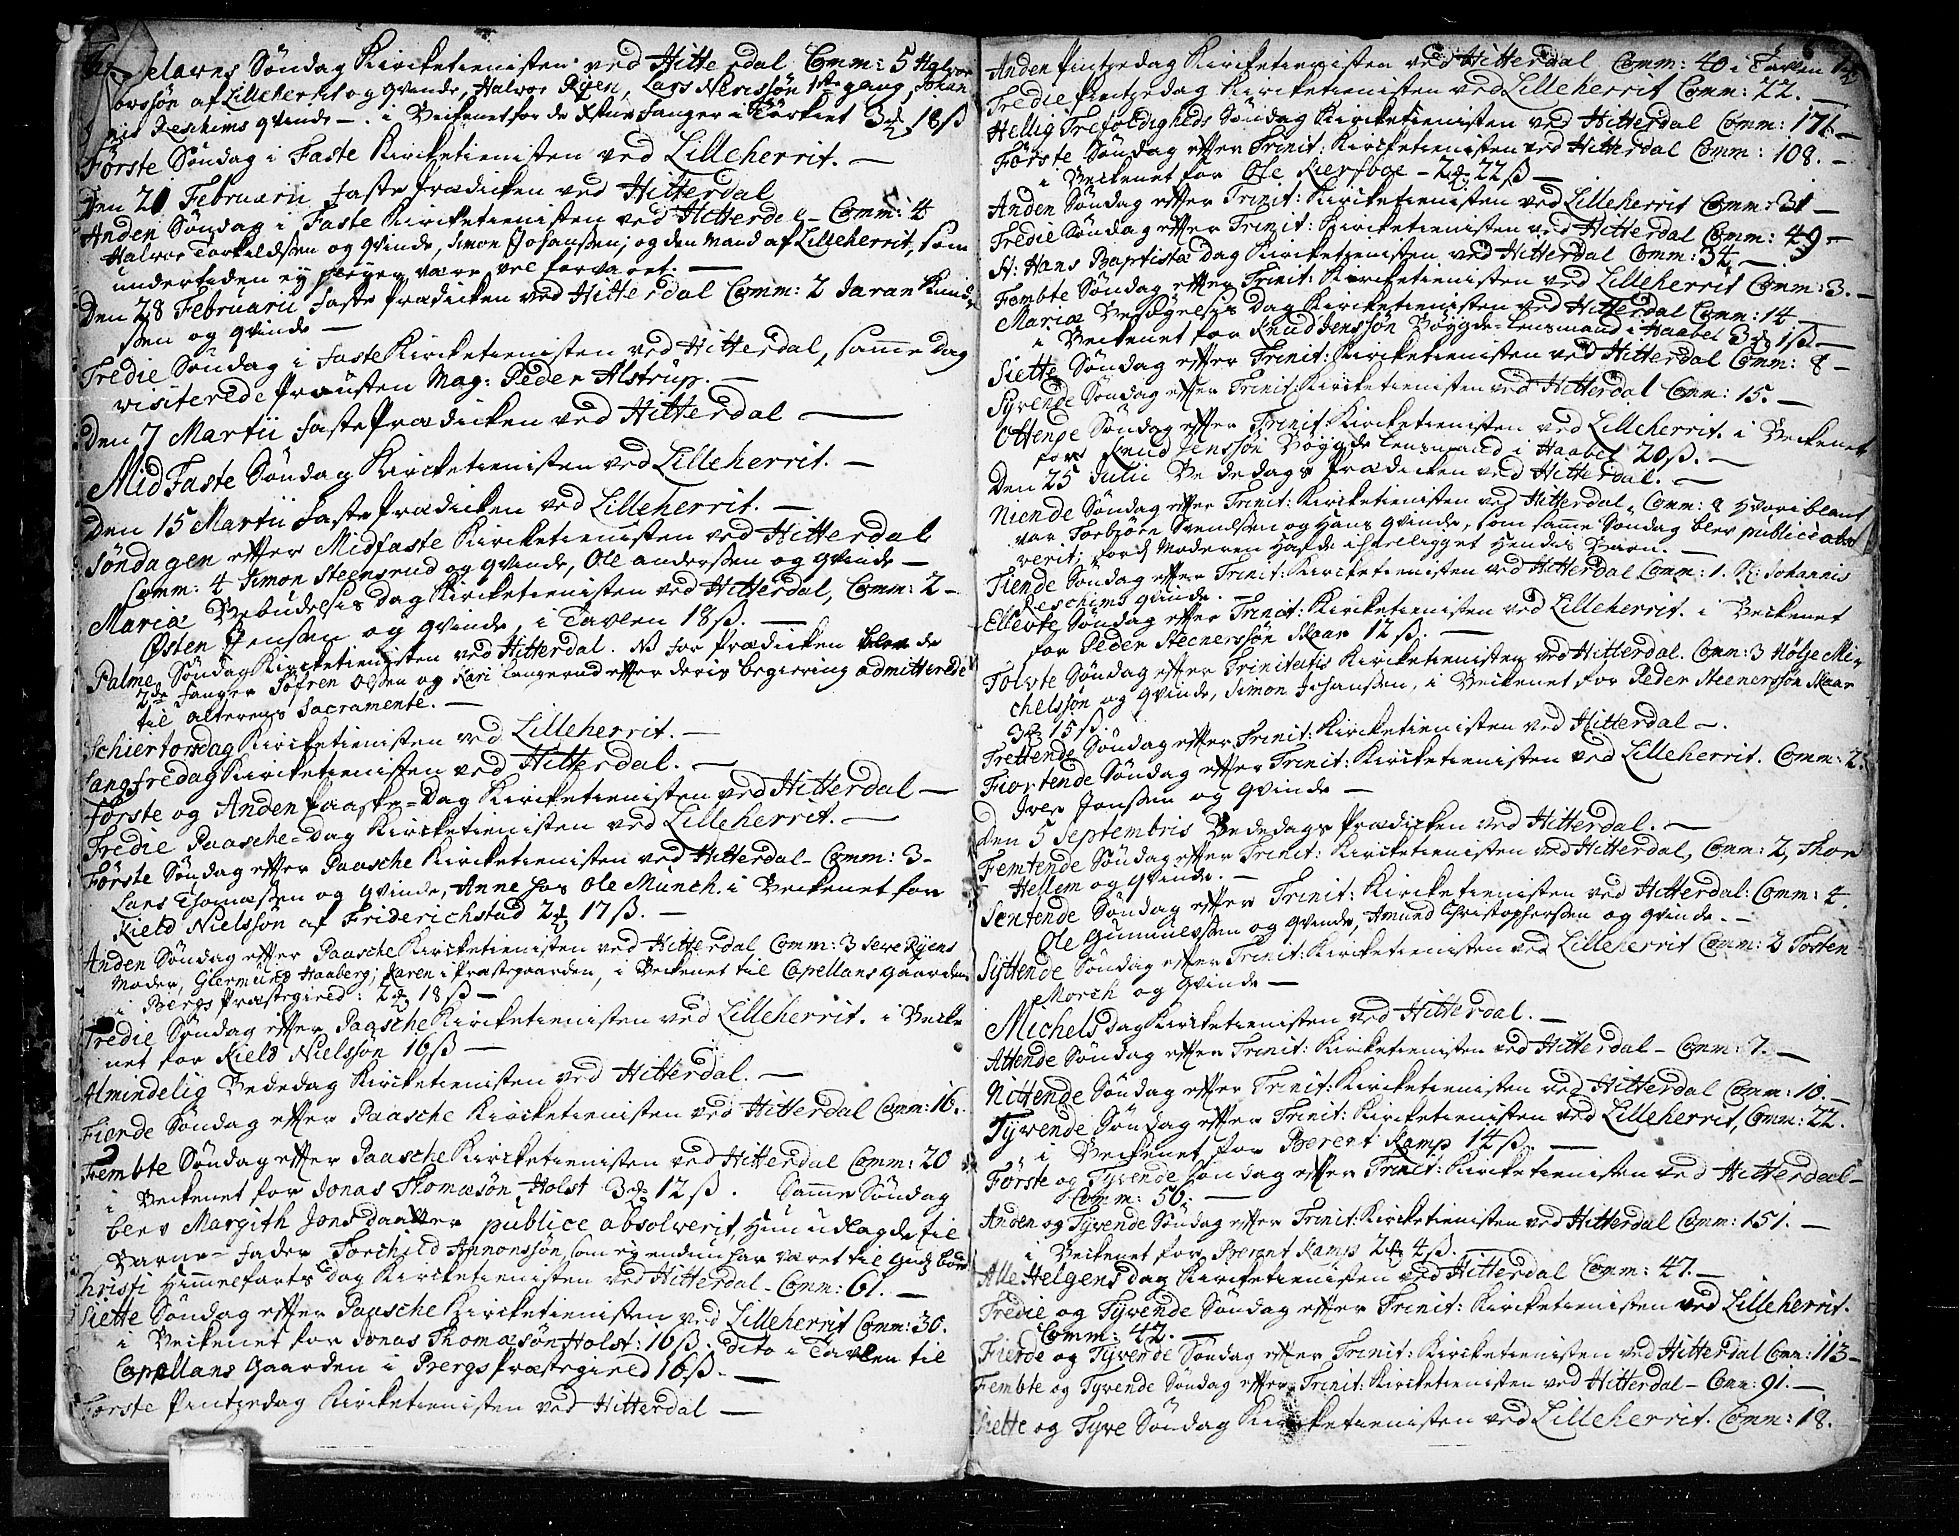 Søndag Kircketienisten ved Hitterdal Comm: 5 Halvor
af Lilleherrit og qvinde, Halvor Ryen, Lars Nerissøn 1ste gang, Johan
nis Reschims qvinde – i Beckenet for de fanger i Tÿrkiet 3 18 ß
Første Søndag i Faste Kircketienisten ved Lilleherrit. –
Den 21 Februarii faste Prædicken ved Hitterdal
Anden Søndag i Faste Kircketienisten ved Hitterdal – Comm: 4
Halvor Torkildssen og qvinde, Simon Johanssen, og den Mand af Lilleherrit, som
undertiden ej pleyer være vel forvaret. –
Den 28 Februarii faste Prædicken ved Hitterdal Comm: 2 Jaran Knud
ssen og qvinde –
Tredie Søndag i faste Kircketienisten ved Hitterdal, samme dag
visiterede Prousten Mag: Peder Alstrup. –
Den 7 Martii faste Prædicken ved Hitterdal –
Mid Faste Søndag Kircketienisten ved Lilleherrit. –
Den 15 Martii faste Prædicken ved Lilleherrit. –
Søndagen effter Midfaste Kircketienisten ved Hitterdal
Comm: 4 Simon Steensrud og qvinde, Ole anderssen og qvinde –
Mariæ Bebudelsis dag Kircketienisten ved Hitterdal, Comm: 2 –
Østen Jenssen og qvinde, i Tavlen 18 ß. –
Palme Søndag Kircketienisten ved Hitterdal. for Prædicken blev de
2de fanger Søfren Olssen og Kari Langerud effter deris begiering admitterede
til alterens Sacramente. –
Schiertorsdag Kircketienisten ved Lilleherrit. –
Langfredag Kircketienisten ved Hitterdal. –
Første og Anden Paaske=Dag Kircketienisten ved Hitterdal –
Tredie Paasche=Dag Kircketienisten ved Lilleherrit. –
Første Søndag effter Paasche Kircketienisten ved Hitterdal – Comm: 3 –
Lars Thomæssen og qvinde, Anne hos Ole Münch. i Beckenet for
Kield Nielssøn af Friderichstad 2 17 ß. –
Anden Søndag effter Paasche Kircketienisten ved Hitterdal Comm: 3 Ryens
Moder, Glermund Haaberg; Karen i Præstegaarden, i Beckenet til Capellans Gaarden
i Bergs Præstegield: 2 18 ß –
Tredie Søndag effter Paasche Kircketienisten ved Lilleherrit. i Becke
net for Kield Nielssøn 16 ß –
Almindelig Bededag Kircketienisten ved Hitterdal. –
Fierde Søndag effter Paasche Kircketienisten ved Hitterdal Comm: 16.
Fembte Søndag effter Paasche Kircketienisten ved Hitterdal Comm: 20
i Beckenet for Jonas Thomæsøn Holst 3 12 ß. Samme Søndag
blev Margith Jonsdaatter publice absolverit, Hun udlagde til
Barne=fader Torchild Annonssøn, som ej endnu har været til Guds bord
Christi Himmelfarts dag Kircketienisten ved Hitterdal – Comm: 61. –
Siette Søndag effter Paasche Kircketienisten ved Lilleherrit Comm: 30.
i Beckenet for Jonas Thomæsøn Holst: 16 ß. dito i Tavlen til
Capellans Gaarden i Bergs Præstegield 16 ß. –
Første Pintzedag Kircketienisten ved Hitterdal –
Anden Pintzedag Kircketienisten ved Hitterdal Comm: 40 i Tavlen
Tredie Pintzedag Kircketienisten ved Lilleherrit Comm: 22. –
Hellig Trefoldigheds Søndag Kircketienisten ved Hitterdal Comm: 171. –
Første Søndag effter Trinit: Kircketienisten ved Hitterdal Comm: 108. –
i Beckenet for Ole Kiersboe – 2 22 ß –
Anden Søndag effter Trinit: Kircketienisten ved Lilleherrit Comm: 31 –
Tredie Søndag effter Trinit: Kircketienisten ved Hitterdal Comm: 49 –
St: Hans Baptistæ dag Kircketienisten ved Hitterdal Comm: 34. –
Fembte Søndag effter Trinit: Kircketienisten ved Lilleherrit Comm: 3. –
Mariæ Besøgelsis Dag Kircketienisten ved Hitterdal Comm: 14 –
i Beckenet for Knud Jenssøn Bøygde=Lensmand i Haabel 3 1 ß. –
Siette Søndag effter Trinit: Kircketienisten ved Hitterdal Comm: 8 –
Syvende Søndag effter Trinit: Kircketienisten ved Hitterdal Comm: 15. –
Ottende Søndag effter Trinit: Kircketienisten ved Lilleherrit. i Beckenet
for Knud Jenssøn Bøygde Lensmand i Haabel 20 ß. –
Den 25 Julii Bededags Prædicken ved Hitterdal. –
Niende Søndag effter Trinit: Kircketienisten ved Hitterdal, Comm: 8 Hvoriblant
var Torbiørn Svendssen og Hans qvinde, som samme Søndag blev publice absol
verit; fordj Moderen hafde ihielligget Hendis Barn. –
Tiende Søndag effter Trinit: Kircketienisten ved Hitterdal Comm: 1. Johannis
Reschims qvinde. –
Ellevte Søndag effter Trinit: Kircketienisten ved Lilleherrit. i Beckenet
for Peder Steenerssøn Skaar 12 ß. –
Tolvte Søndag effter Trinitatis Kircketienisten ved Hitterdal. Comm: 3 Hølje Mi=
chelssøn og qvinde, Simon Johanssen, i Beckenet for Peder Steenerssøn Skaar
3 15 ß. –
Trettende Søndag effter Trinit: Kircketienisten ved Hitterdal –
Fiortende Søndag effter Trinit: Kircketienisten ved Lilleherrit. Comm: 2.
Iver Jonssen og qvinde –
Den 5 Septembris Bededags Prædicken ved Hitterdal. –
Femtende Søndag effter Trinit: Kircketienisten ved Hitterdal, Comm: 2, Thor
Hellem og qvinde. –
Sextende Søndag effter Trinit: Kircketienisten ved Hitterdal: Comm: 4.
Ole Gunnulvssen og qvinde, Amund Christopherssen og qvinde. –
Syttende Søndag effter Trinit: Kircketienisten ved Lilleherrit Comm: 2 Tosten
Morch og qvinde –
Michels dag Kircketienisten ved Hitterdal. –
Attende Søndag effter Trinit: Kircketienisten ved Hitterdal – Comm: 7. –
Nittende Søndag effter Trinit: Kircketienisten ved Hitterdal Comm: 10. –
Tyvende Søndag effter Trinit: Kircketienisten ved Lilleherrit, Comm: 22.
i Beckenet for Berent Kamp 14 ß. –
Første og Tyvende Søndag effter Trinit: Kircketienisten ved Hitterdal –
Comm: 56: –
Anden og Tyvende Søndag effter Trinit: Kircketienisten ved Hitterdal Comm: 151. –
i Beckenet for Berent Kamp 2 4 ß.
Alle Helgens dag Kircketienisten ved Hitterdal Comm: 47. –
Tredie og Tyvende Søndag effter Trinit: Kircketienisten ved Lilleherrit.
Comm: 42. –
Fierde og Tyvende Søndag effter Trinit: Kircketienisten ved Hitterdal Comm: 113 –
Fembte og Tyvende Søndag effter Trinit: Kircketienisten ved Hitterdal – Comm: 91. –
Siette og Tyve Søndag Kircketienisten ved Lilleherrit. Comm: 18.